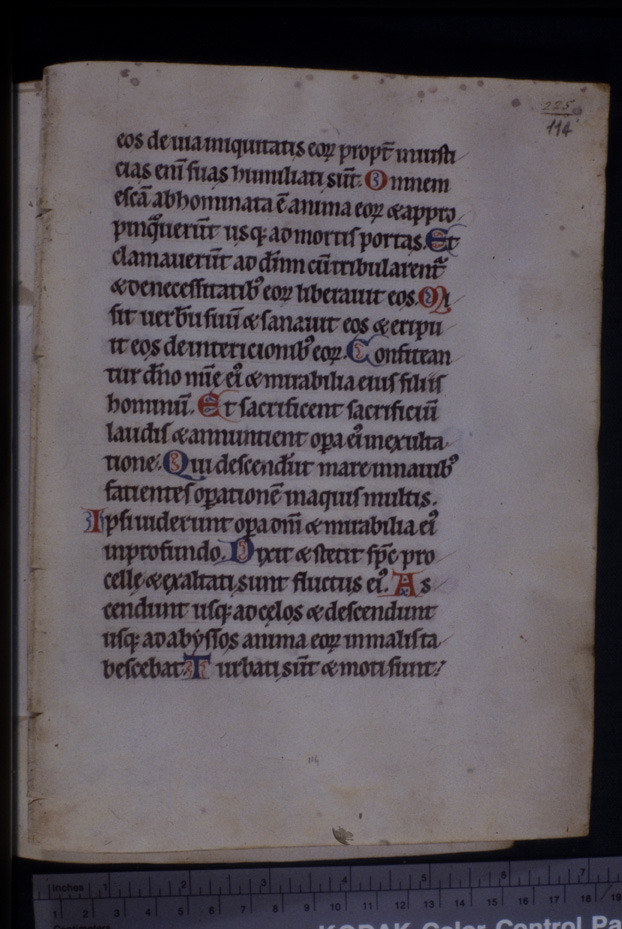 225
114
eos de uia iniquitatis eoꝝ propt̄ iniusti
cias eni᷒ suas humiliati su̅t. Omnem
esca̅ abhominata e̅ anima eoꝝ & appro
pinq̅ueru̅t usq; ad mortis portas. Et
clamaueru̅t ad dn̅m cu̅ tribularent᷑
& de necessitatib᷒ eoꝝ liberauit eos. Mi
sit uerbu̅ suu̅ & sanauit eos & eripu
it eos de intericionib᷒ eoꝝ. Confitean
tur dn̅o mi̅e ei᷒ & mirabilia eius filiis
hominu̅. Et sacrificent sacrificiu̅
laudis & annuntient oꝑa ei᷒ in exulta
tione. Qui descendu̅t mare in nauib᷒
facientes oꝑatione̅ in aquis multis.
Ipsi uiderunt oꝑa dn̅i & mirabilia ei᷒
in profundo. Dixit & stetit sp̅c pro
celle & exaltati sunt fluctus ei᷒. As
cendunt usq; ad celos & descendunt
usq; ad abyssos anima eoꝝ in malis ta
bescebat. Turbati su̅t & moti sunt
inches 1 2 3 4 5 6 7
1 2 3 4 5 6 7 8 9 10 11 12 13 14 15 16 17 18 19
Centimetres
KODAK Color Control Pa